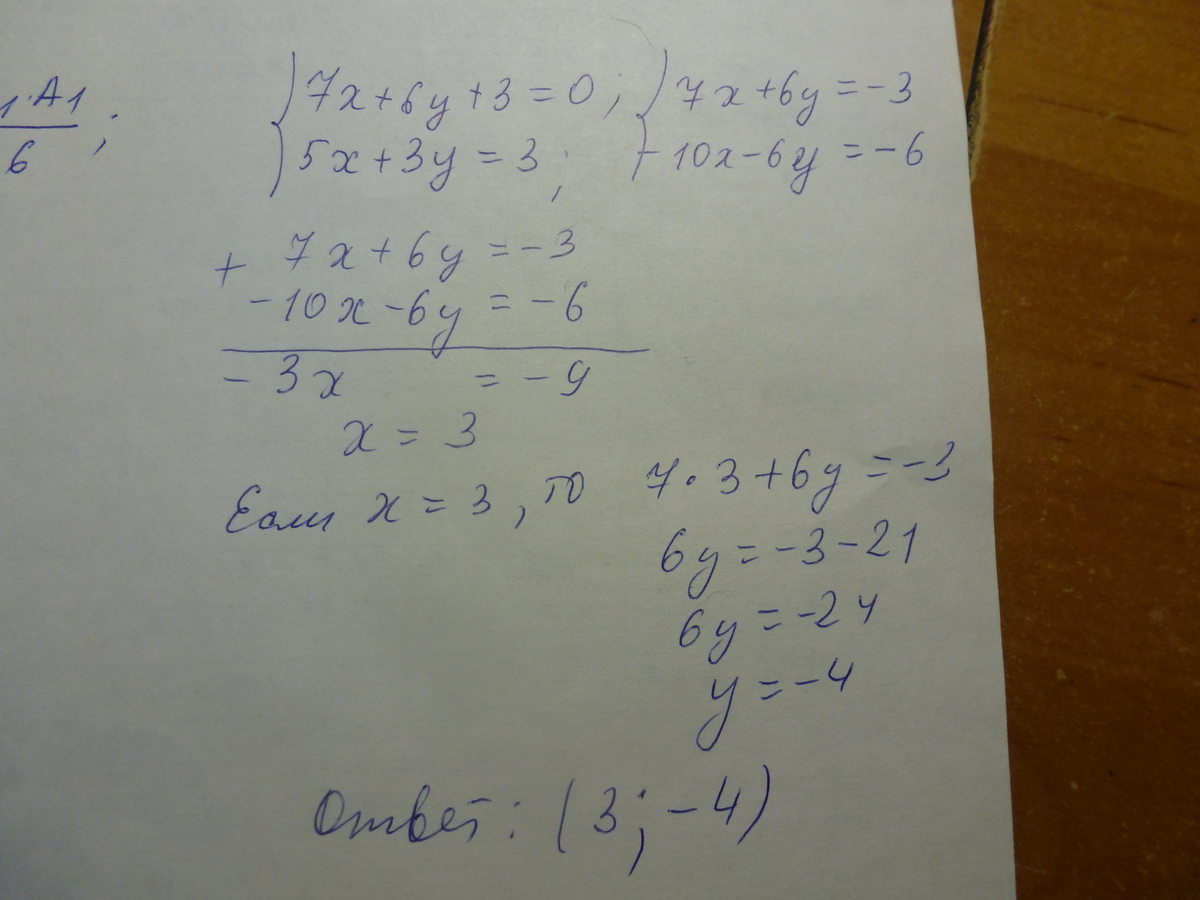 1·A1
6 ;
7x+6y+3=0; 7x+6y=-3
5x+3y=3; -10x-6y=-6
+ 7x+6y=-3
-10x-6y=-6
-3x =-9
x=3
Если x=3, то 7·3+6y=-3
6y=-3-21
6y=-24
y=-4
Ответ: (3;-4)